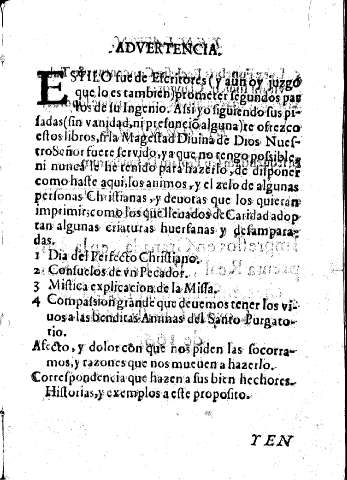 ADVERTENCIA.
ESTILO fue de Escritores (y aun oy juzgo
que lo es tambien) prometer segundos par
tos de su Ingenio. Assi yo siguiendo sus pi-
sadas (sin vanidad, ni presunciō alguna) te ofrezco
estos libros, si la Magestad Diuina de Dios Nues-
tro Señor fuere seruido, ya que no tengo possible,
ni nunca le he tenido para hazerlo, de disponer
como haste aqui, los animos, y el zelo de algunas
personas Christianas, y deuotas que los quieran
imprimir; como los que lleuados de Caridad adop
tan algunas criaturas huerfanas y desampara-
das.
1 Dia del Perfecto Christiano.
2 Consuelos de vn Pecador.
3 Mistica explicacion de la Missa.
4 Compassion grande que deuemos tener los vi-
uos a las benditas Animas del Santo Purgato-
rio.
Afecto, y dolor con que nos piden las socorra-
mos, y razones que nos mueuen a hazerlo.
Correspondencia que hazen a sus bien hechores.
Historias, y exemplos a este proposito.
YEN